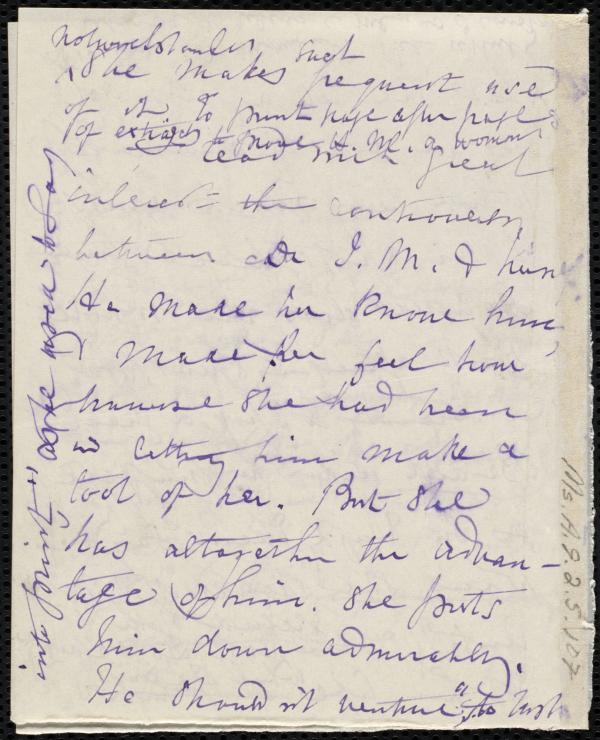 She makes such frequent use
of it. To print page after page
of extracts prove H. M. a woman's
read with great
interest the controversy
between Dr J. M. & her
He made her know him,
& made her feel how
unwise she had been
in letting him make a
tool of her. But she
has altogether the advan-
tage of him. She puts
him down admirably.
He should n't venture "to rush
into print" as he used to say
Ms. A. 9. 2. 5. 107